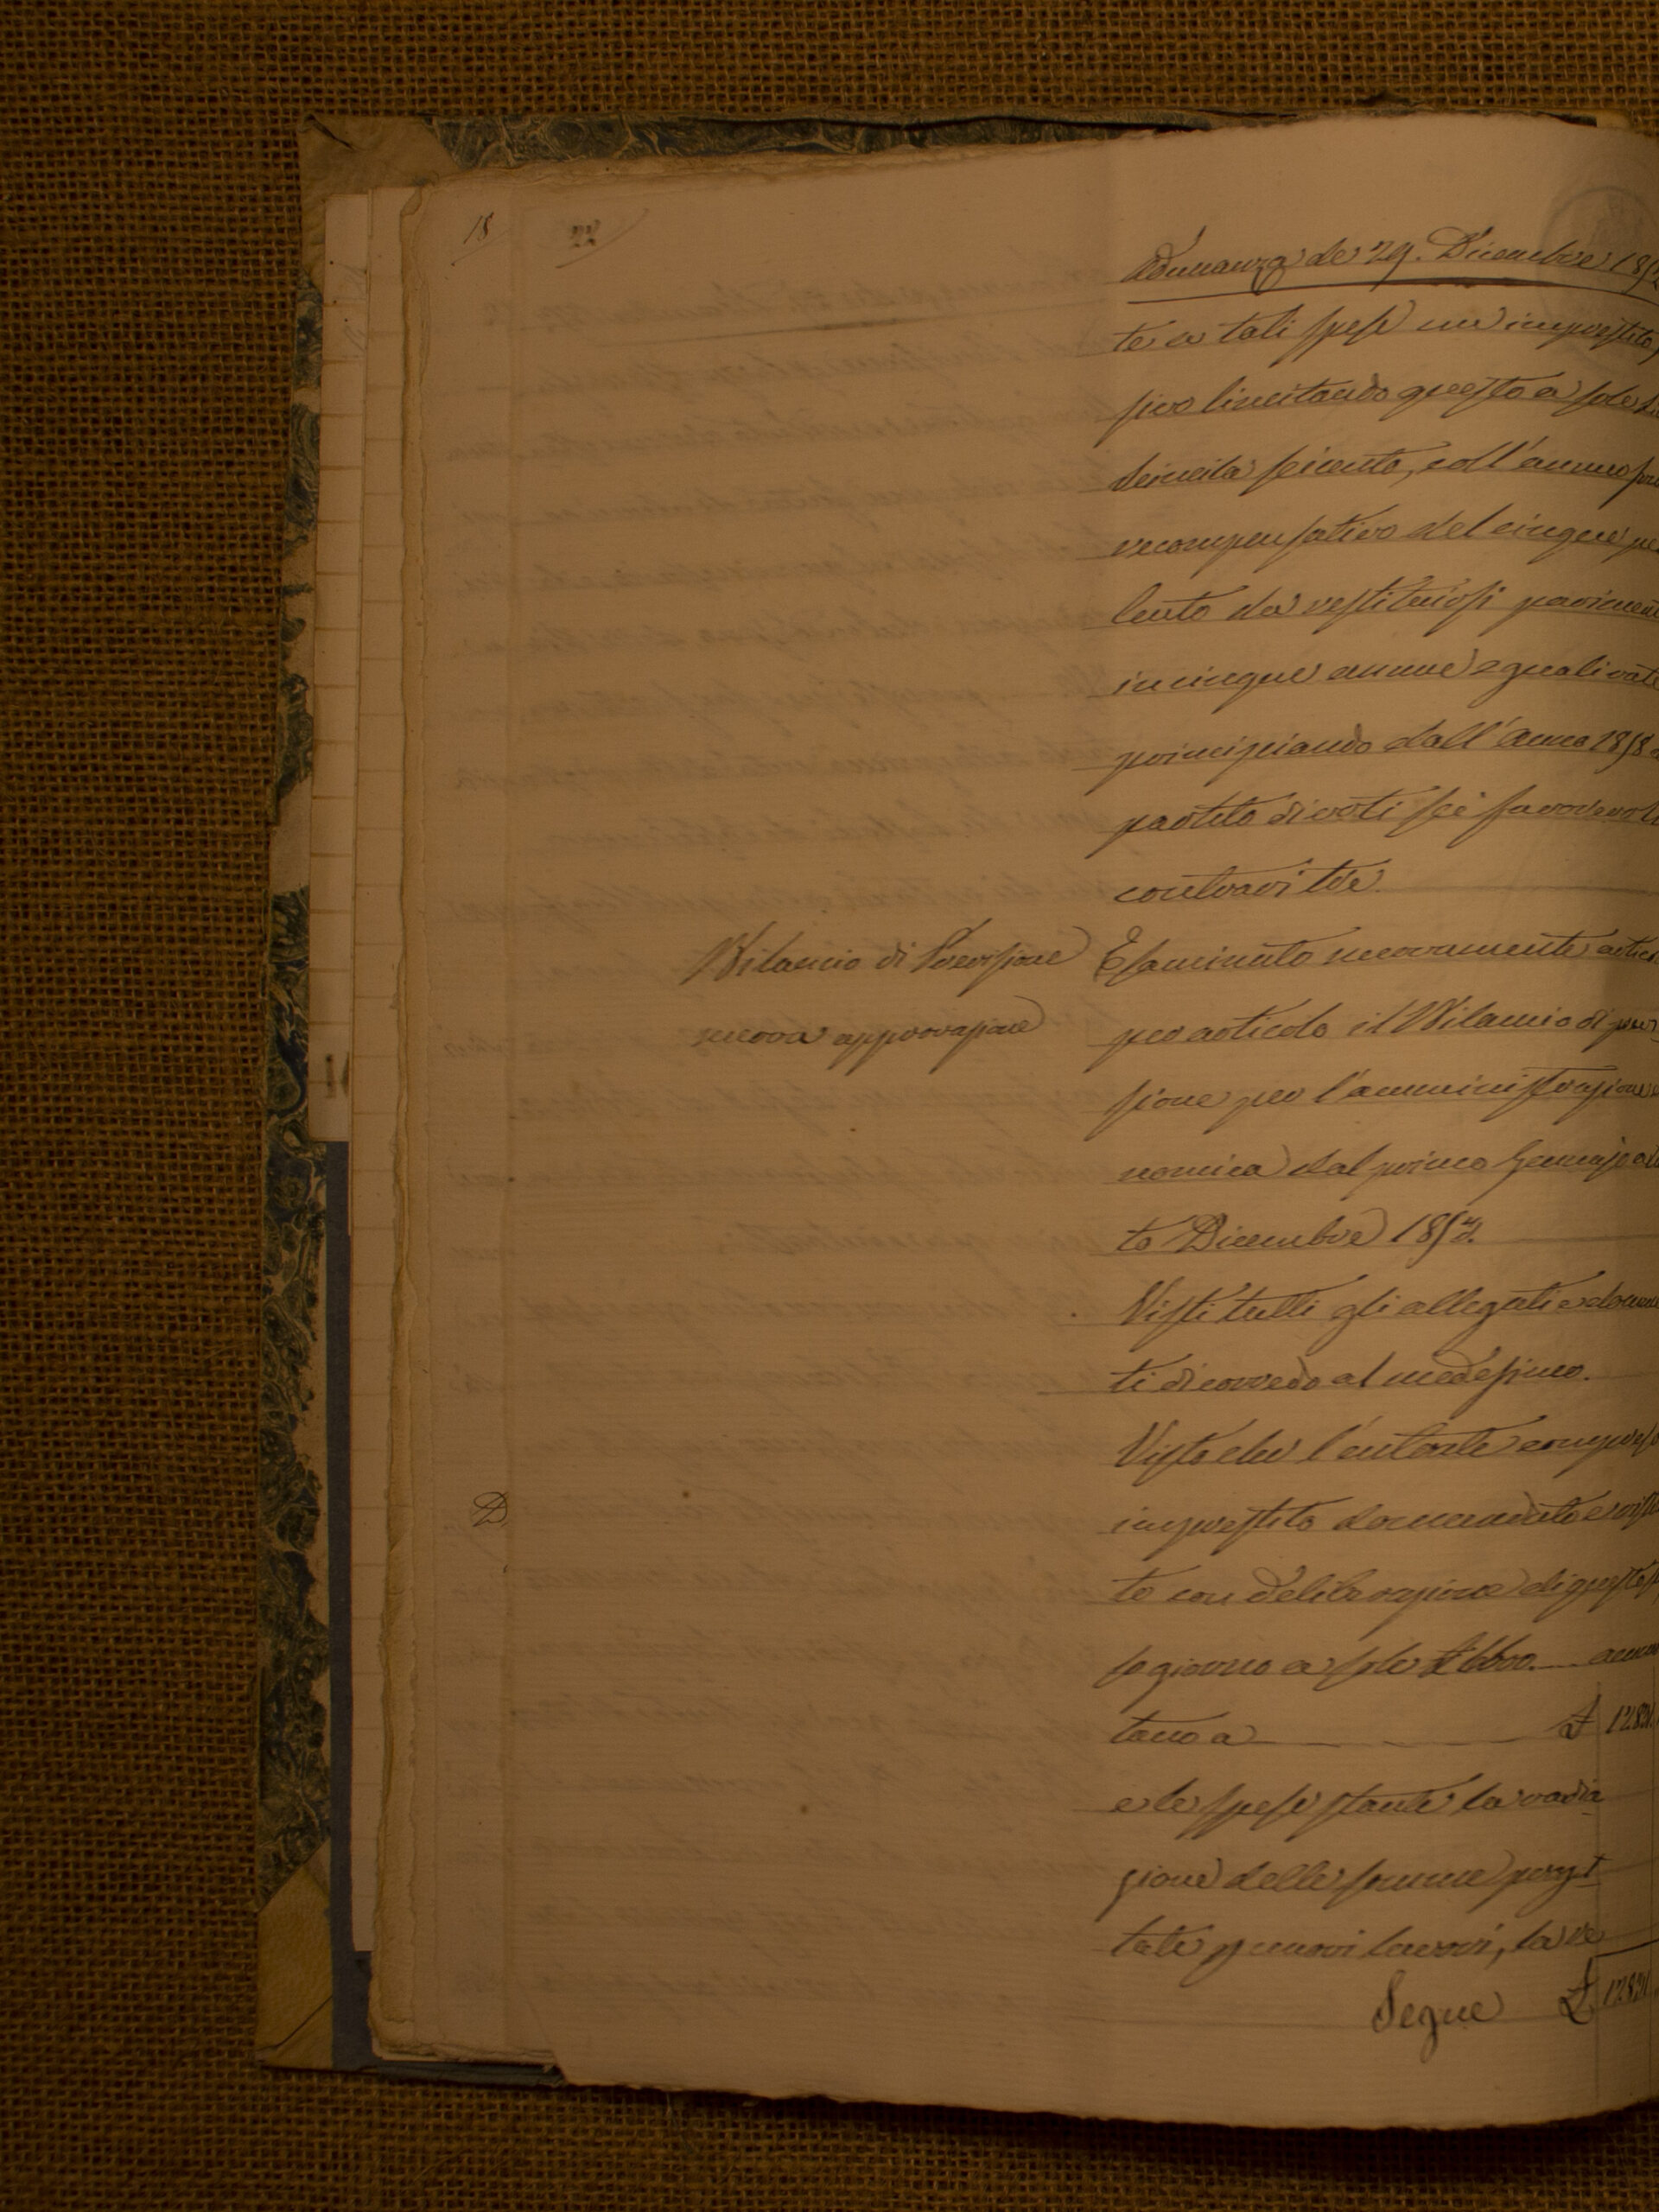 18
22
Adunanza de' 29. Dicembre 185
te a tali spese un imprestito,
sivo limitando questo a sole L
Seimila secento, coll'annuo fru
recompensativo del cinque pe
Cento da restituirsi parimen
in cinque annue eguali rate
principiando dall'Anno 1858
partito di voti sei favorevoli
contrari tre.
Bilancio di Previsione
nuova approvazione
Esaminato nuovamente artico
per articolo il Bilancio di previ
sione per l'amministrazione
nomica dal primo Gennajo a
to Dicembre 185
Visti tutti gli allegati e docume
ti di corredo al medesimo.
Visto che l'entrate compreso
imprestito domandato e
to con deliberazione di questo
so giorno a sole £ 6600. amm
tano a £ 1282
e le spese stante la varia
zione delle somme
tate nuovi lavori, la re
Segue £ 1282
D